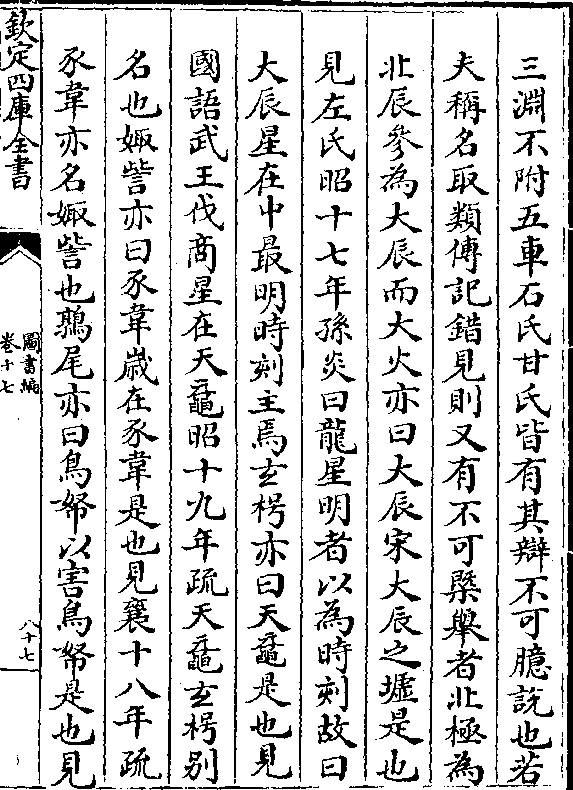 三淵不附五車石氏甘氏皆有其辯不可臆説也若
夫稱名取類傳記錯見則又有不可槩舉者北極為
北辰參為大辰而大火亦曰大辰宋大辰之墟是也
見左氏昭十七年孫炎曰龍星明者以為時刻故曰
大辰星在中最明時刻主焉玄枵亦曰天黿是也見
國語武王伐商星在天黿昭十九年疏天黿玄枵别
名也娵訾亦曰豕韋歲在豕韋是也見襄十八年疏
豕韋亦名娵訾也鶉尾亦曰鳥帑以害鳥帑是也見
欽定四庫全書
圖書編
卷十七
八十七